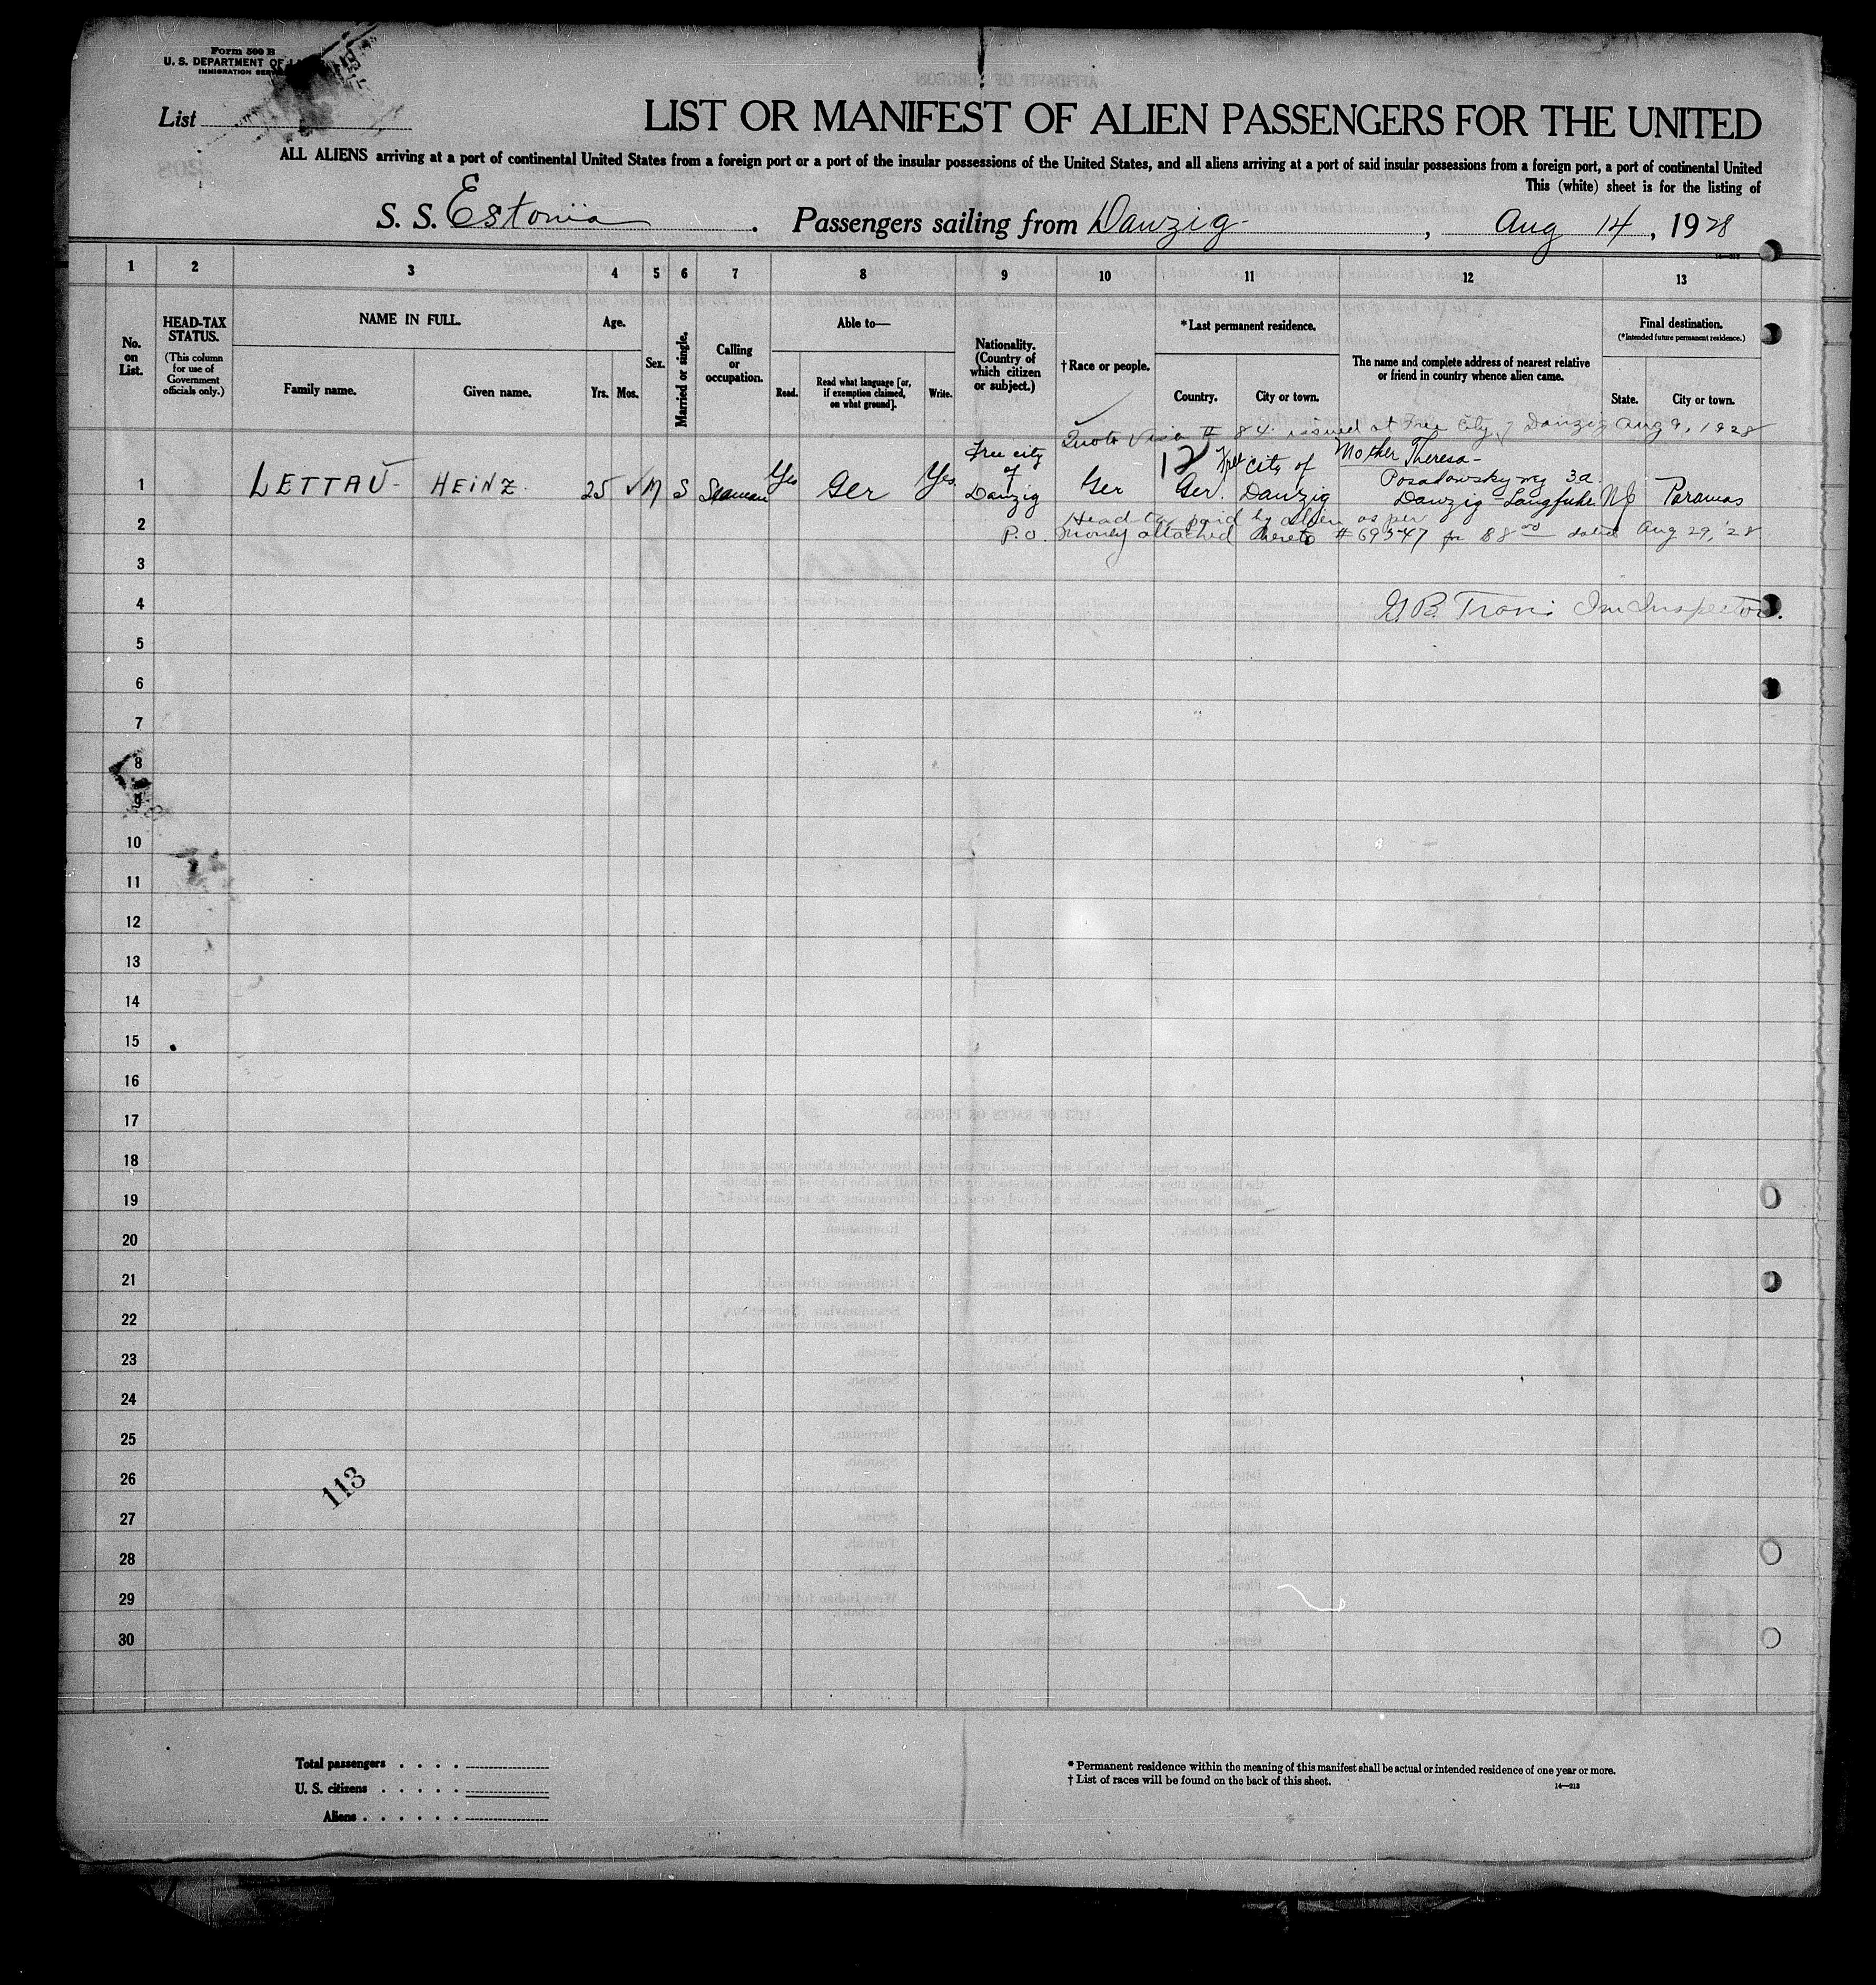 Form 500 B
U. S. DEPARTMENT OF
IMMIGRATION
List
LIST OR MANIFEST OF ALIEN PASSENGERS FOR THE UNITED
ALL ALIENS arriving at a port of continental United States from a foreign port or a port of the insular possessions of the United States, and all aliens arriving at a port of said insular possessions from a foreign port, a port of continental United
This (white) sheet is for the listing of
S. S. Estonia. Passengers sailing from Danzig, Aug 14, 1928
14—213
1 2 3 4 5 6 7 8 9 10 11 12 13
No. on List.
HEAD-TAX STATUS.
(This column for use of Government officials only.)
NAME IN FULL.
Family name.
Given name.
Age.
Yrs. Mos.
Sex.
Married or single.
Calling or occupation.
Able to—
Read.
Read what language [or, if exemption claimed, on what ground].
Write.
Nationality. (Country of which citizen or subject.)
†Race or people.
*Last permanent residence.
Country.
City or town.
The name and complete address of nearest relative or friend in country whence alien came.
Final destination.
(*Intended future permanent residence.)
State.
City or town.
Quota Visa # 84 issued at Free City of Danzig Aug 9, 1928
1 LETTAU HEINZ 25 M S Seaman Yes Ger Yes Free city of Danzig Ger 12 Ger. Free City of Danzig Mother Theresa - Posadowskyweg 3a Danzig-Langfuhr NJ Paramus
2 Head tax paid by alien as per
P.O. money attached hereto #69547 for $8 00 dated Aug 29, '28
3
4 Im Inspector.
5
6
7
8
9
10
11
12
13
14
15
16
17
18
19
20
21
22
23
24
25
26
113
27
28
29
30
Total passengers . . . .
U. S. citizens . . . . .
Aliens . . . . . .
* Permanent residence within the meaning of this manifest shall be actual or intended residence of one year or more.
† List of races will be found on the back of this sheet.
14—213